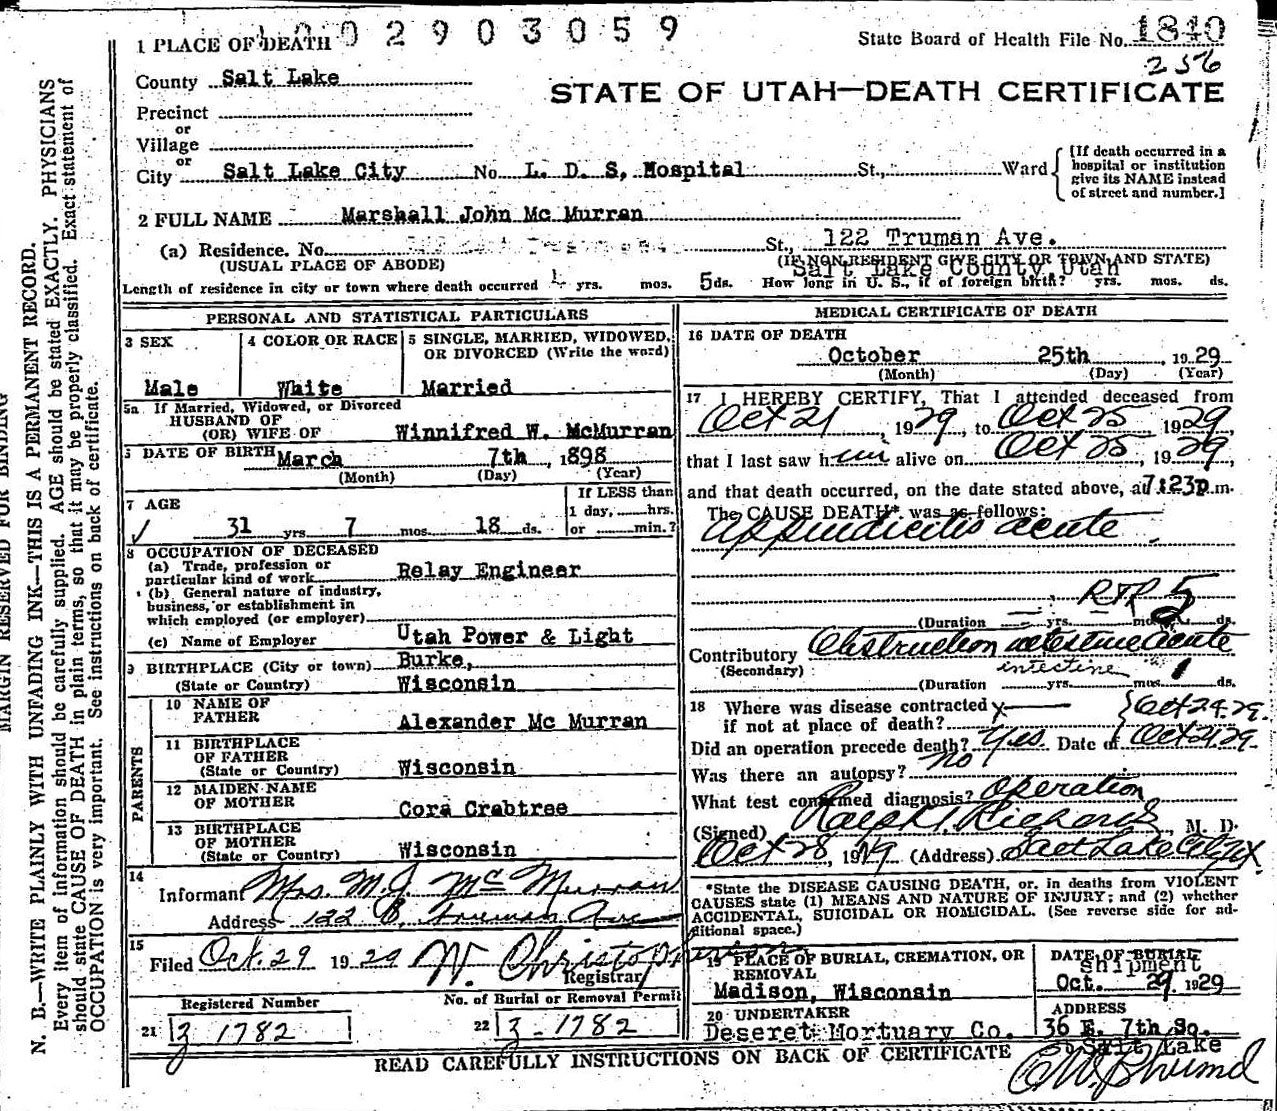 1002903059
1 PLACE OF DEATH
State Board of Health File No. 1840
256
County Salt Lake
STATE OF UTAH—DEATH CERTIFICATE
Precinct
or
Village
or
City Salt Lake City No. L. D. S. Hospital St., Ward
[If death occurred in a
hospital or institution
give its NAME instead
of street and number.]
2 FULL NAME Marshall John Mc Murran
(a) Residence. No. St., 122 Truman Ave.
(USUAL PLACE OF ABODE) (IF NON RESIDENT GIVE CITY OR TOWN AND STATE)
Salt Lake County Utah
Length of residence in city or town where death occurred yrs. mos. 5 ds. How long in U. S., if of foreign birth? yrs. mos. ds.
PERSONAL AND STATISTICAL PARTICULARS
3 SEX
Male
4 COLOR OR RACE
White
5 SINGLE, MARRIED, WIDOWED,
OR DIVORCED (Write the word)
Married
5a If Married, Widowed, or Divorced
HUSBAND OF
(OR) WIFE OF Winnifred W. McMurran
6 DATE OF BIRTH March 7th, 1898
(Month) (Day) (Year)
7 AGE
31 yrs 7 mos. 18 ds.
If LESS than
1 day, hrs.
or min.?
8 OCCUPATION OF DECEASED
(a) Trade, profession or
particular kind of work Relay Engineer
(b) General nature of industry,
business, or establishment in
which employed (or employer)
(c) Name of Employer Utah Power & Light
9 BIRTHPLACE (City or town) Burke,
(State or Country) Wisconsin
PARENTS
10 NAME OF
FATHER Alexander Mc Murran
11 BIRTHPLACE
OF FATHER
(State or Country) Wisconsin
12 MAIDEN NAME
OF MOTHER Cora Crabtree
13 BIRTHPLACE
OF MOTHER
(State or Country) Wisconsin
14
Informant Mrs. M. J. Mc Murran
Address 122 E. Truman Ave
15
Filed Oct. 29 1929 W. Christopherson
Registrar
Registered Number
21 z 1782
No. of Burial or Removal Permit
22 z-1782
MEDICAL CERTIFICATE OF DEATH
16 DATE OF DEATH
October 25th, 1929
(Month) (Day) (Year)
17 I HEREBY CERTIFY, That I attended deceased from
Oct 21, 1929, to Oct 25 1929,
that I last saw him alive on Oct 25, 1929,
and that death occurred, on the date stated above, at 7:23p.m.
The CAUSE DEATH* was as follows:
Appendicitis acute
RTR 5
(Duration yrs. mos. ds.
Contributory Obstruction intestine acute
(Secondary) intestine 1
(Duration yrs. mos. ds.
18 Where was disease contracted
if not at place of death? Oct 24. 29.
Did an operation precede death? Yes. Date of Oct 21, 29.
Was there an autopsy? No
What test confirmed diagnosis? Operation
(Signed) Ralph T. Richards, M. D.
Oct 28, 1929 (Address) Salt Lake City, Ut.
*State the DISEASE CAUSING DEATH, or, in deaths from VIOLENT
CAUSES state (1) MEANS AND NATURE OF INJURY; and (2) whether
ACCIDENTAL, SUICIDAL OR HOMICIDAL. (See reverse side for ad-
ditional space.)
19 PLACE OF BURIAL, CREMATION, OR
REMOVAL
Madison, Wisconsin
DATE OF BURIAL
Shipment
Oct. 29, 1929
20 UNDERTAKER
Deseret Mortuary Co.
ADDRESS
36 E. 7th So.
Salt Lake
READ CAREFULLY INSTRUCTIONS ON BACK OF CERTIFICATE
MARGIN RESERVED FOR BINDING
N. B.—WRITE PLAINLY WITH UNFADING INK—THIS IS A PERMANENT RECORD.
Every item of information should be carefully supplied. AGE should be stated EXACTLY. PHYSICIANS
should state CAUSE OF DEATH in plain terms, so that it may be properly classified. Exact statement of
OCCUPATION is very important. See instructions on back of certificate.